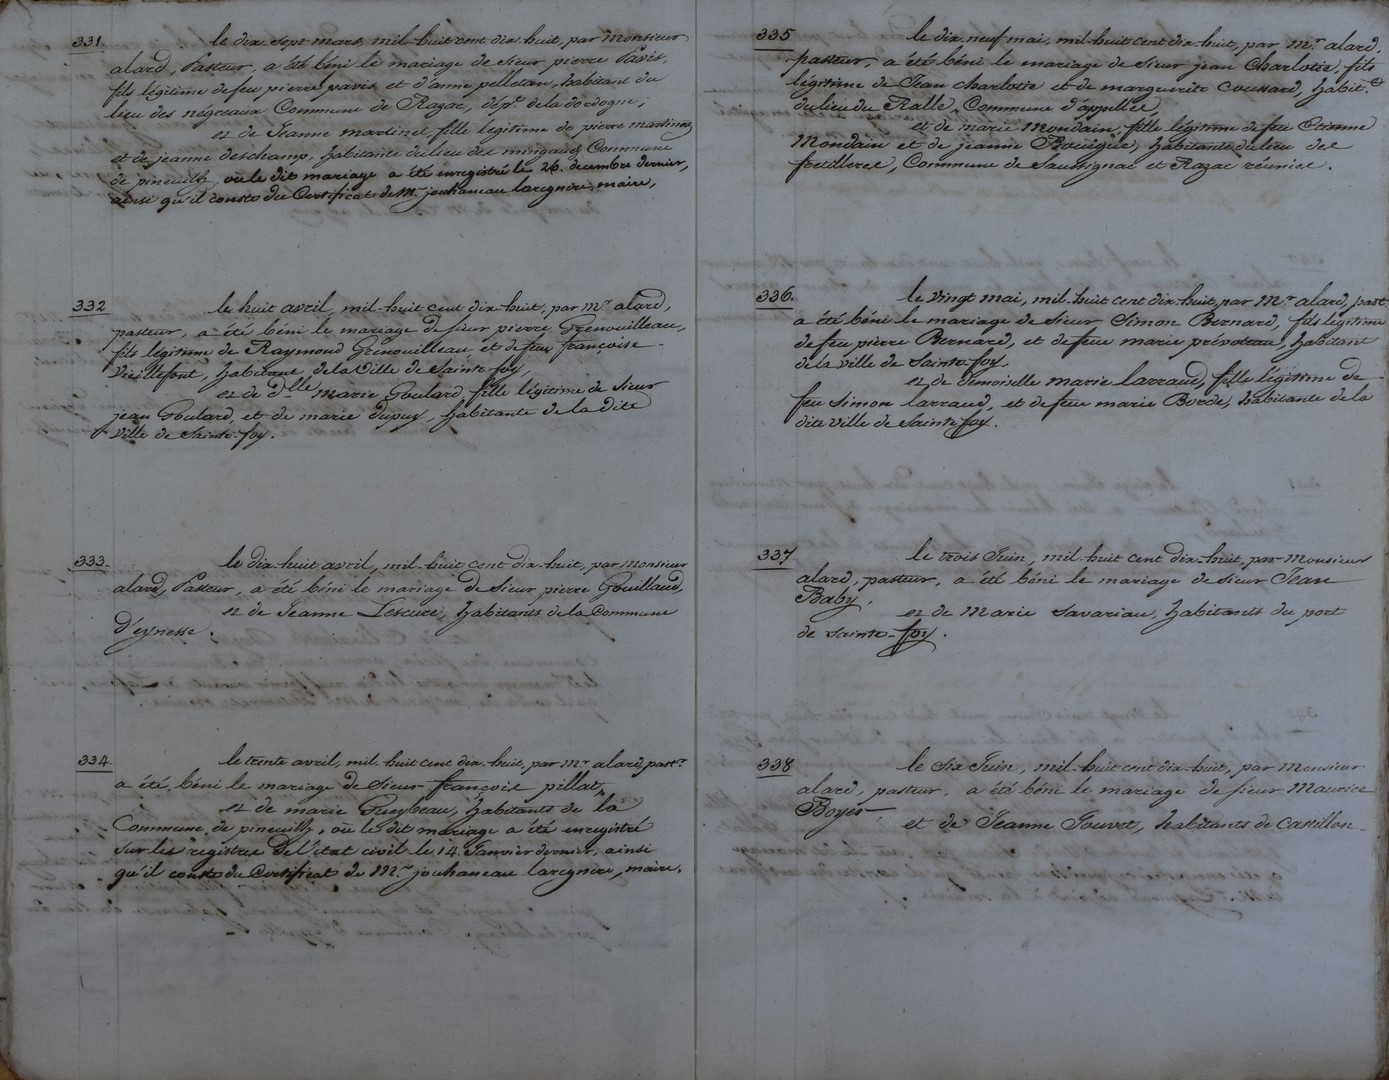 331.
le dix Sept mars, mil-huit cent dix huit, par monsieur
alard, Pasteur, a été béni le mariage de Sieur pierre Pavis,
fils légitime de feu pierre pavis et d'anne pelletan, habitant du
lieu des négreaux Commune de Razac, dépt. de la dordogne;
et de Jeanne martinet, fille légitime de pierre martinet
et de jeanne deschamp, habitante du lieu des mingauds Commune
de pineuilh, où le dit mariage a été enregistré le 26. decembre dernier,
ainsi qu'il conste du Certificat de Mr. jouhaneau laregnere, maire,
332
le huit avril, mil-huit cent dix-huit, par mr. alard,
pasteur, a été béni le mariage de sieur pierre Grenouilleau,
fils légitime de Raymond Grenouilleau et de feue françoise
Vieillefont, habitant de la Ville de Sainte-foy,
et de dlle marie Goulard, fille légitime de Sieur
jean Goulard, et de marie dupuy, habitante de la dite
ville de Sainte-foy.
333.
le dix-huit avril, mil-huit cent dix-huit, par monsieur
alard, Pasteur, a été béni le mariage de Sieur pierre Gouillaud,
et de Jeanne Lescure, habitants de la Commune
d'eynesse
334.
le trente avril, mil-huit cent dix-huit, par mr alard, pastr.
a été béni le mariage de Sieur françois pillat,
et de marie Guybeau, habitants de la
Commune de pineuilh, où le dit mariage a été enregistré
sur les registres de l'état civil le 14 Janvier dernier, ainsi
qu'il conste du Certificat de Mr. jouhaneau laregnere, maire.
335
le dix neuf mai, mil-huit cent dix-huit, par mr. alard,
pasteur, a été béni le mariage de Sieur jean Charlotte, fils
légitime de Jean charlotte et de marguerite Coussard, habit.t
du lieu du Ralle, Commune d'appelles
et de marie Mondain, fille légitime de feu Etienne
Mondain et de jeanne Bouigue, habitante du lieu des
freuilleres, Commune de Saussignac et Razac réunies.
336.
le Vingt mai, mil-huit cent dix-huit, par Mr. alard, past
a été béni le mariage de Sieur Simon Bernard, fils légitime
de feu pierre Bernard, et de feue marie prévoteau, habitant
de la ville de Sainte-foy
et de Demoiselle marie larraud, fille légitime de
feu Simon larraud, et de feue marie Borde, habitante de la
dite Ville de Sainte-foy.
337
le trois Juin, mil-huit cent dix-huit, par monsieur
alard, pasteur, a été béni le mariage de Sieur Jean
Baby.
et de Marie Savariau, habitants du port
de Sainte-foy.
338
le Six Juin, mil-huit cent dix-huit, par monsieur
alard, pasteur, a été béni le mariage de Sieur Maurice
Boyer
et de Jeanne Jouvet, habitants de Castillon.